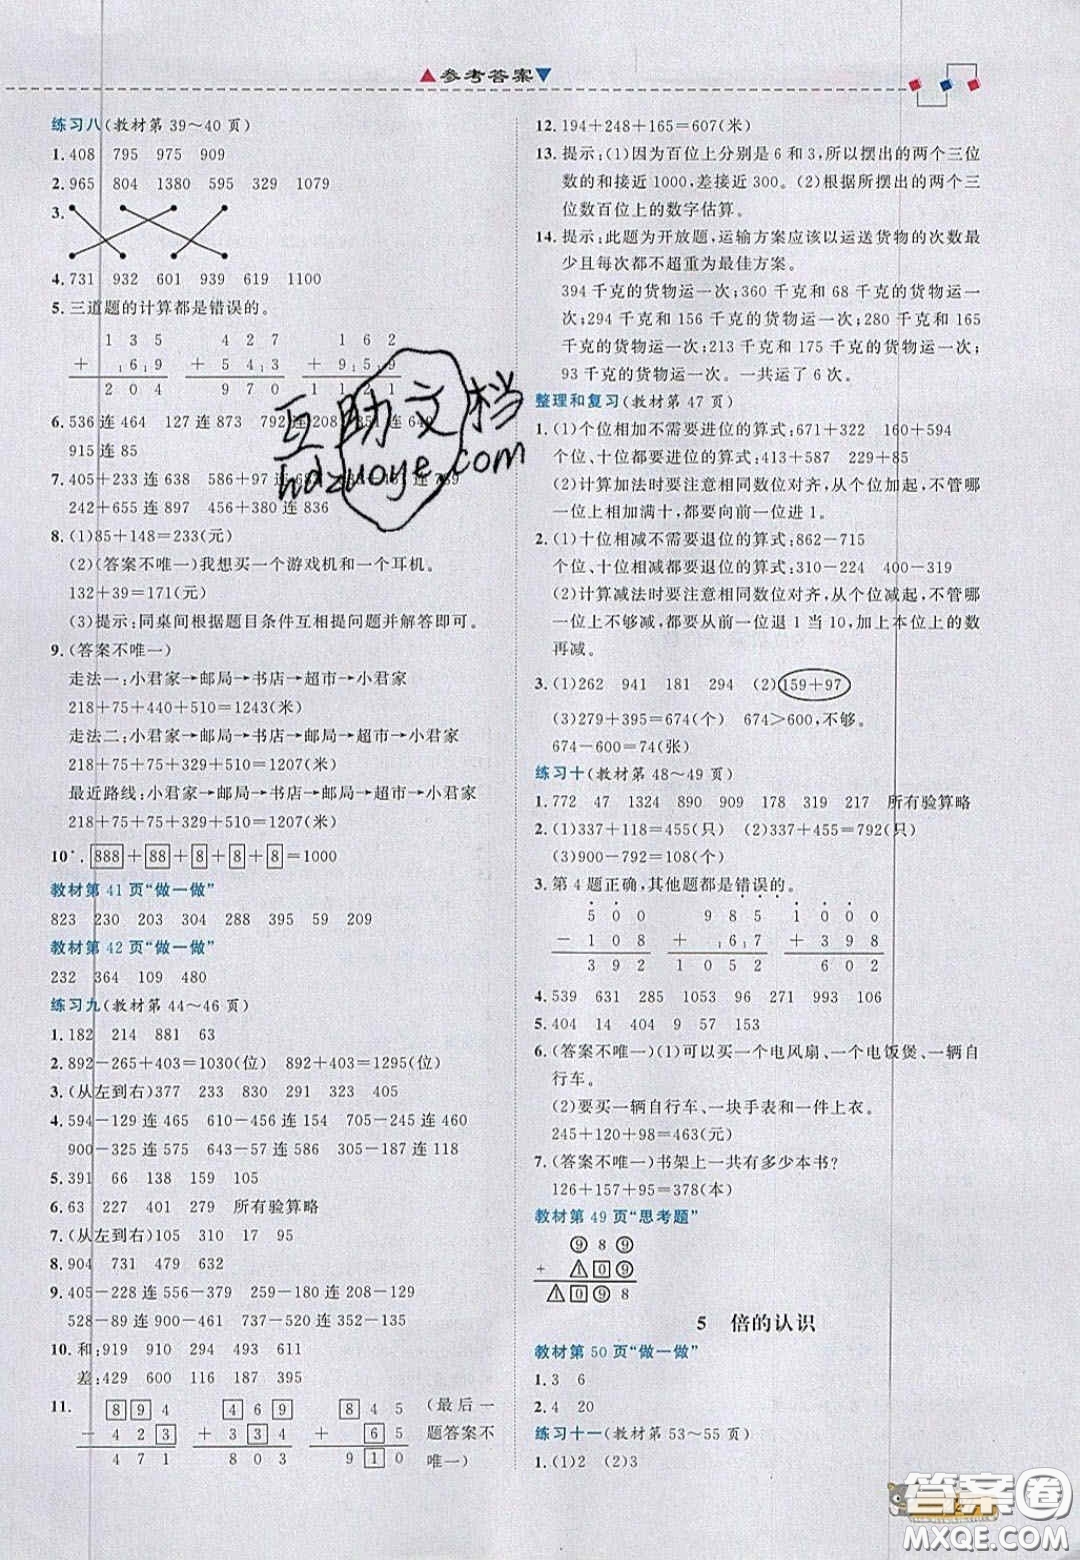 参考答案
练习八(教材第39～40页)
1. 408 795 975 909
2. 965 804 1380 595 329 1079
3.
4. 731 932 601 939 619 1100
5. 三道题的计算都是错误的。
1 3 5 4 2 7 1 6 2
+ 1 6 1 9 + 5 4 1 3 + 9 1 5 1 9
2 0 4 9 7 0 1 1 2 1
6. 536连464 127连873 792连208
915连85
7. 405+233连638 586+97连
242+655连897 456+380连836
8. (1)85+148=233(元)
(2)(答案不唯一)我想买一个游戏机和一个耳机。
132+39=171(元)
(3)提示:同桌间根据题目条件互相提问题并解答即可。
9. (答案不唯一)
走法一:小君家→邮局→书店→超市→小君家
218+75+440+510=1243(米)
走法二:小君家→邮局→书店→邮局→超市→小君家
218+75+75+329+510=1207(米)
最近路线:小君家→邮局→书店→邮局→超市→小君家
218+75+75+329+510=1207(米)
10*. 888+88+8+8+8=1000
教材第41页“做一做”
823 230 203 304 288 395 59 209
教材第42页“做一做”
232 364 109 480
练习九(教材第44～46页)
1. 182 214 881 63
2. 892-265+403=1030(位) 892+403-265=1030(位)
3. (从左到右)377 233 830 291 323 405
4. 594-129连465 610-456连154 705-245连460
900-325连575 643-57连586 305-187连118
5. 391 66 138 159 208
6. 63 227 401 279 所有验算略
7. (从左到右)105 310 17 95
8. 904 731 479 682
9. 405-228连556-379 259-180连208-129
528-89连900-461 522-287连352-135
10. 和:919 910 294 493 931
差:429 660 116 187 395
11. 8 9 4 4 6 9 8 4 5 (最后一
- 4 2 3 + 3 3 4 + 6 5 题答案不
4 7 1 8 0 3 9 1 0 唯一)
12. 194+248+165=607(米)
13. 提示:(1)因为百位上分别是6和3,所以摆出的两个三位
数的和接近1000,差接近300。(2)根据所摆出的两个三
位数百位上的数字估算。
14. 提示:此题为开放题,运输方案应该以运送货物的次数最
少且每次都不超重为最佳方案。
394千克的货物运一次;360千克和68千克的货物运一
次;294千克和156千克的货物运一次;280千克和165
千克的货物运一次;213千克和175千克的货物运一次;
93千克的货物运一次。一共运了6次。
整理和复习(教材第47页)
1. (1)个位相加不需要进位的算式:671+322 160+594
个位、十位都要进位的算式:413+587 229+85
(2)计算加法时要注意相同数位对齐,从个位加起,不管哪
一位上相加满十,都要向前一位进1。
2. (1)十位相减不需要退位的算式:862-715
个位、十位相减都要退位的算式:310-224 400-319
(2)计算减法时要注意相同数位对齐,从个位减起,不管哪
一位上不够减,都要从前一位退1当10,加上本位上的数
再减。
3. (1)262 941 181 294 (2)159+97
(3)279+395=674(个) 674>600,不够。
674-600=74(张)
练习十(教材第48～49页)
1. 772 47 1324 890 909 178 319 217 所有验算略
2. (1)337+118=455(只) (2)337+455=792(只)
(3)900-792=108(只)
3. 第4题正确,其他题都是错误的。
5 0 0 9 8 5 1 0 0 0
- 1 0 8 + 1 6 1 7 - 3 2 9
3 9 2 1 0 5 2 6 7 1
4. 539 631 285 1053 96 271 993 106
5. 404 14 404 9 57 153
6. (答案不唯一)(1)可以买一个电风扇、一个电饭煲、一辆自
行车。
(2)要买一辆自行车、一块手表和一件上衣。
245+120+98=463(元)
7. (答案不唯一)书架上一共有多少本书?
126+157+95=378(本)
教材第49页“思考题”
9 8 9
+ 1 0 9
1 0 9 8
5 倍的认识
教材第50页“做一做”
1. 3 6
2. 4 20
练习十一(教材第53～55页)
1. (1)2 (2)3
互助文档
hdzuoye.com
答案圈
MXQE.COM